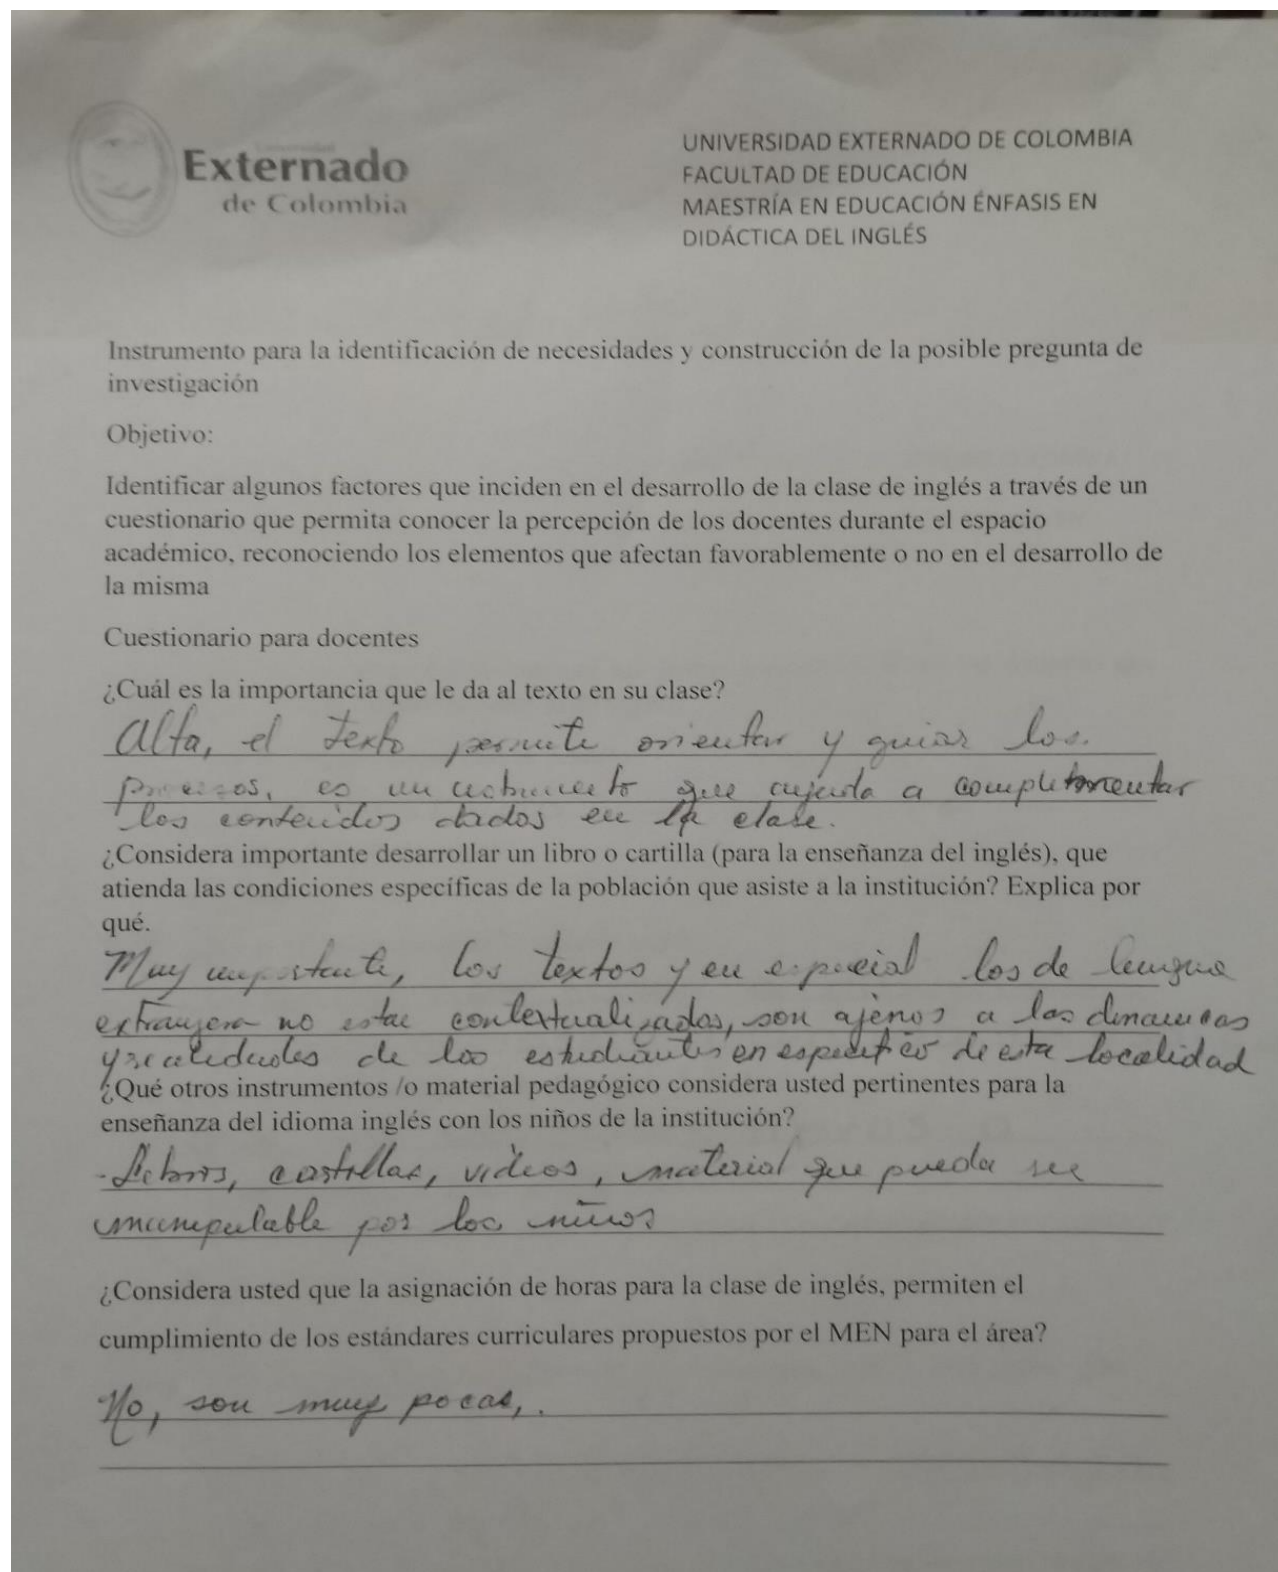 Externado
de Colombia
UNIVERSIDAD EXTERNADO DE COLOMBIA
FACULTAD DE EDUCACIÓN
MAESTRÍA EN EDUCACIÓN ÉNFASIS EN
DIDÁCTICA DEL INGLÉS
Instrumento para la identificación de necesidades y construcción de la posible pregunta de
investigación
Objetivo:
Identificar algunos factores que inciden en el desarrollo de la clase de inglés a través de un
cuestionario que permita conocer la percepción de los docentes durante el espacio
académico, reconociendo los elementos que afectan favorablemente o no en el desarrollo de
la misma
Cuestionario para docentes
¿Cuál es la importancia que le da al texto en su clase?
Alta, el texto permite orientar y guiar los
procesos, es un instrumento que ayuda a complementar
los contenidos dados en la clase.
¿Considera importante desarrollar un libro o cartilla (para la enseñanza del inglés), que
atienda las condiciones específicas de la población que asiste a la institución? Explica por
qué.
Muy importante, los textos y en especial los de lengua
extranjera no estan contextualizados, son ajenos a las dinamicas
y realidades de los estudiantes en especifico de esta localidad
¿Qué otros instrumentos /o material pedagógico considera usted pertinentes para la
enseñanza del idioma inglés con los niños de la institución?
- Libros, cartillas, videos, material que pueda ser
manipulable por los niños
¿Considera usted que la asignación de horas para la clase de inglés, permiten el
cumplimiento de los estándares curriculares propuestos por el MEN para el área?
No, son muy pocas,.